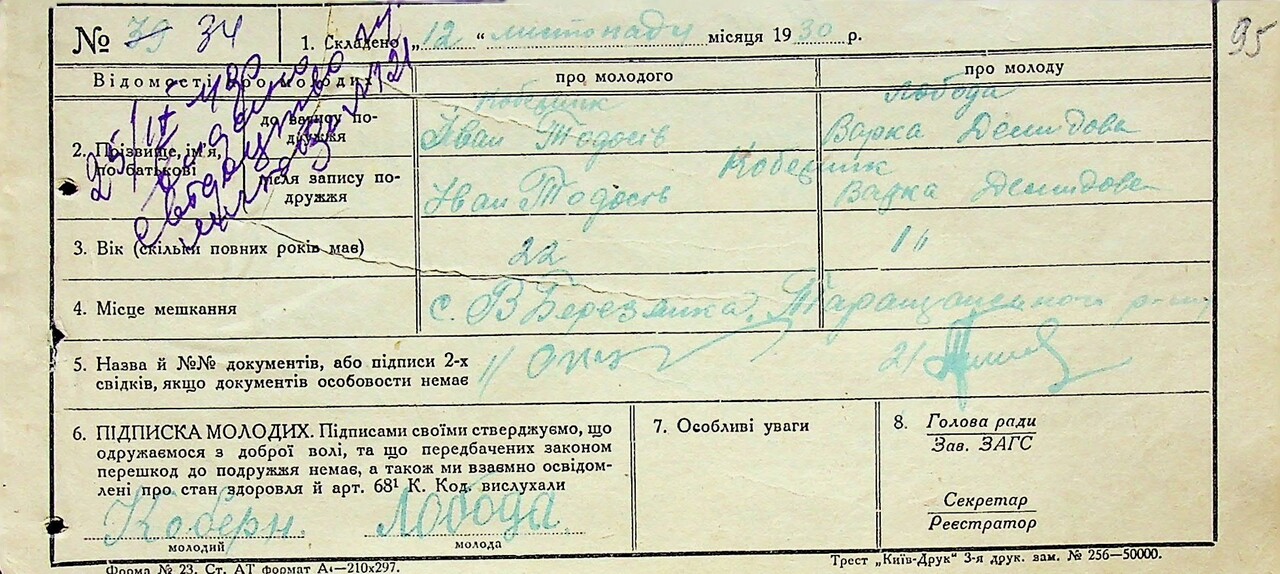 № 39 34
1. Складено „12“ листопаду місяця 1930 р.
95
Відомості про молодих
про молодого
про молоду
2. Прізвище, ім'я, по батькові
до запису подружжя
Іван Тодосів
Лобода
Варка Демидова
після запису подружжя
Іван Тодосів
Варка Демидова
3. Вік (скільки повних років має)
22
4. Місце мешкання
с. В Березянка, Таращанського
5. Назва й №№ документів, або підписи 2-х
свідків, якщо документів особовости немає
1/
2/
6. ПІДПИСКА МОЛОДИХ. Підписами своїми стверджуємо, що
одружаємося з доброї волі, та що передбачених законом
перешкод до подружжя немає, а також ми взаємно освідом-
лені про стан здоровля й арт. 68¹ К. Код. вислухали
Коберн. Лобода
молодий молода
7. Особливі уваги
8. Голова ради
Зав. ЗАГС
Секретар
Реєстратор
Форма № 23. Ст. АТ формат А₄—210х297.
Трест „Київ-Друк“ 3-я друк. зам. № 256—50000.